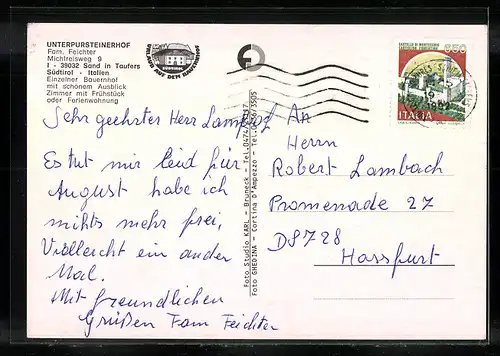 UNTERPURSTEINERHOF
Fam. Feichter
Michlreisweg 9
I - 39032 Sand in Taufers
Südtirol - Italien
Einzelner Bauernhof
mit schönem Ausblick
Zimmer mit Frühstück
oder Ferienwohnung
URLAUB AUF DEM BAUERNHOF
SÜDTIROL
Sehr geehrter Herr Lambach
Es tut mir leid für
August habe ich
nichts mehr frei,
Vielleicht ein ander
Mal.
Mit freundlichen
Grüßen Fam Feichter
Foto Studio KARL - Bruneck - Tel.
Foto GHEDINA - Cortina D'Ampezzo - Tel.
650
ITALIA
An
Herrn
Robert Lambach
Promenade 27
D8728
Hassfurt